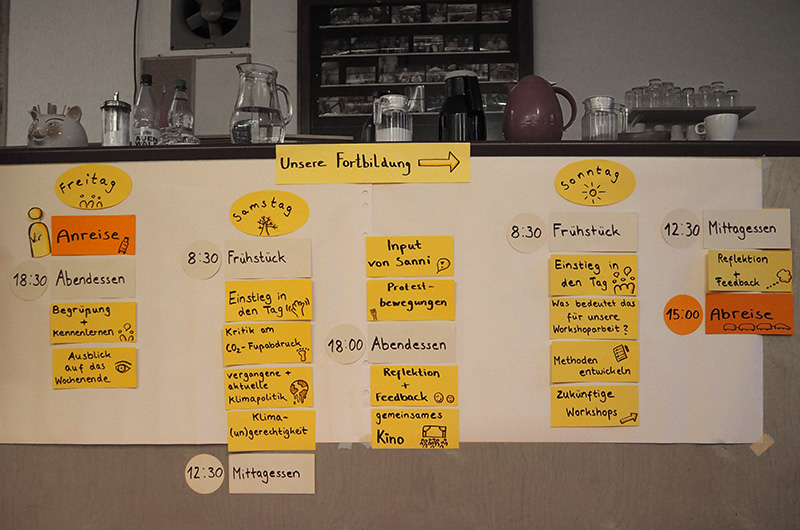 Unsere Fortbildung
Freitag
Anreise
18:30
Abendessen
Begrüßung
+
Kennenlernen
Ausblick
auf das
Wochenende
Samstag
8:30
Frühstück
Einstieg in
den Tag
Kritik am
CO2-Fußabdruck
vergangene +
aktuelle
Klimapolitik
Klima-
(un)gerechtigkeit
12:30
Mittagessen
Input
von Sanni
Protest-
bewegungen
18:00
Abendessen
Reflektion
+
Feedback
gemeinsames
Kino
Sonntag
8:30
Frühstück
Einstieg in
den Tag
Was bedeutet das
für unsere
Workshoparbeit?
Methoden
entwickeln
Zukünftige
Workshops
12:30
Mittagessen
Reflektion
+
Feedback
15:00
Abreise